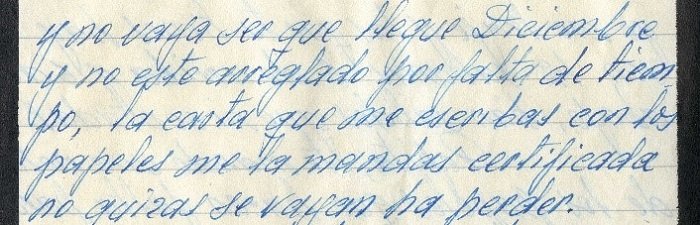 y no vaya ser que llegue Diciembre
y no este arreglado por falta de tiem
po, la carta que me escribas con los
papeles me la mandas certificada
no quizas se vayan ha perder.